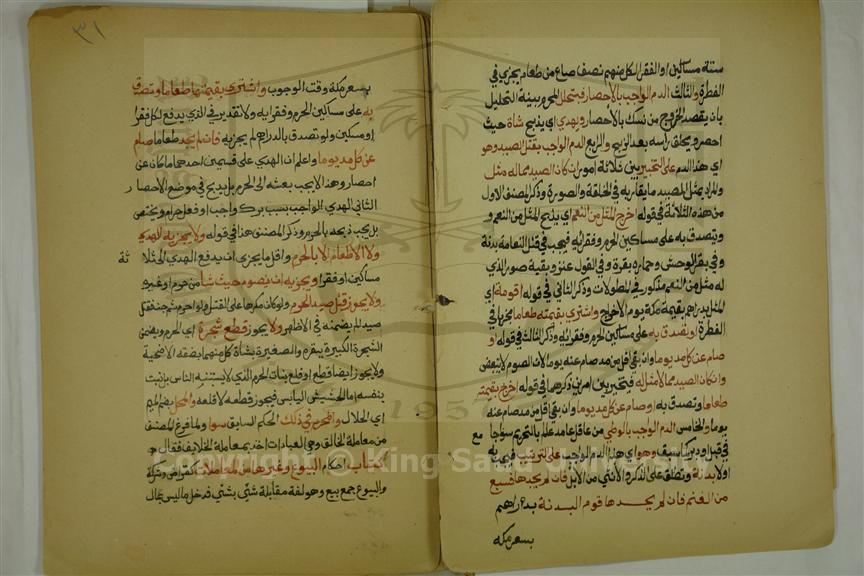 ستة مساكين او الفقرا لكل منهم نصف صاع من طعام يجزي في
الفطرة والثالث الدم الواجب بالاحصار فيتحلل المحرم بنية التحلل
بان يقصد الخروج من نسكه بالاحصار ويهدي اي يذبح شاة حيث
احصر ويحلق راسه بعد الذبح والرابع الدم الواجب بقتل الصيد وهو
اي هذا الدم على التخيير بين ثلاثة امور ان كان الصيد مما له مثل
والمراد بمثل الصيد ما يقاربه في الخلقة والصورة وذكر المصنف الاول
من هذه الثلاثة في قوله اخرج المثل من النعم اي يذبح المثل من النعم و
ويتصدق به على مساكين الحرم وفقرائه فيجب في قتل النعامة بدنة
وفي بقر الوحش وحماره بقرة وفي الغزل عنز وبقية صور الذي
له مثل من النعم مذكور في المطولات وذكر الثاني في قوله او قومه اي
المثل بدراهم بقيمة مكة يوم الاخراج واشترى بقيمته طعاما مجزيا في
الفطرة او تصدق به على مساكين الحرم وفقرائه وذكر الثالث في قوله او
صام عن كل مد يوما وان بقي اقل من مد صام عنه يوما لان الصوم لا يتبعض
وان كان الصيد مما لا مثل له فيتخير بين امرين ذكرهما في قوله اخرج بقيمته
طعاما وتصدق به او صام عن كل مد يوما وان بقي اقل من مد صام عنه
يوما والخامس الدم الواجب بالوطئ من عاقل عامد علم بالتحريم سوا جامع
في قبل او دبر كما سبق وهو اي هذا الدم الواجب على الترتيب فيجب به
اولا بدنة وتطلق على الذكر والانثى من الابل فان لم يجدها فسبع
من الغنم فان لم يجدها قوم البدنة بدراهم
بسعر مكة
٣١
بسعر مكة وقت الوجوب واشترى بقيمتها طعاما وتصدق
به على مساكين الحرم وفقرايه ولا تقدير في الذي يدفع لكل فقير
او مسكين ولو تصدق بالدراهم لم يجزيه فان لم يجد طعاما صام
عن كل مد يوما واعلم ان الهدي على قسمين احدهما كان عن
احصار وهذا لا يجب بعثه الى الحرم بل يذبح في موضع الاحصار
الثاني الهدي الواجب بسبب ترك واجب او فعل حرام ويختص
بل يجب ذبحه بالحرم وذكر المصنف هذا في قوله ولا يجزيه الهدي
ولا الاطعام الا بالحرم واقل ما يجزي ان يدفع الهدي الى ثلاثة
مساكين او فقرا ويجزيه ان يصوم حيث شا من حرم او غيره
ولا يجوز قتل صيد الحرم ولو كان مكرها على القتل ولو احرم ثم جن فقتل
صيد لم يضمنه في الاظهر ولا يجوز قطع شجره اي الحرم ويضمن
الشجرة الكبيرة ببقرة والصغيرة بشاة كل منهما بصفة الاضحية
ولا يجوز ايضا قطع او قلع نبات الحرم الذي لا يستنبته الناس بل ينبت
بنفسه اما الحشيش اليابس فيجوز قطعه لا قلعه والمحل بضم الميم
اي الحلال والمحرم في ذلك الحكم السابق سوا ولما فرغ المصنف
من معاملة الخالق وهي العبادات اخذ في معاملة الخلايق فقال
كتاب احكام البيوع وغيرها من المعاملات كقراض وشركة
والبيوع جمع بيع وهو لغة مقابلة شئ بشئ فدخل ما ليس بمال
© King Saud University
1957